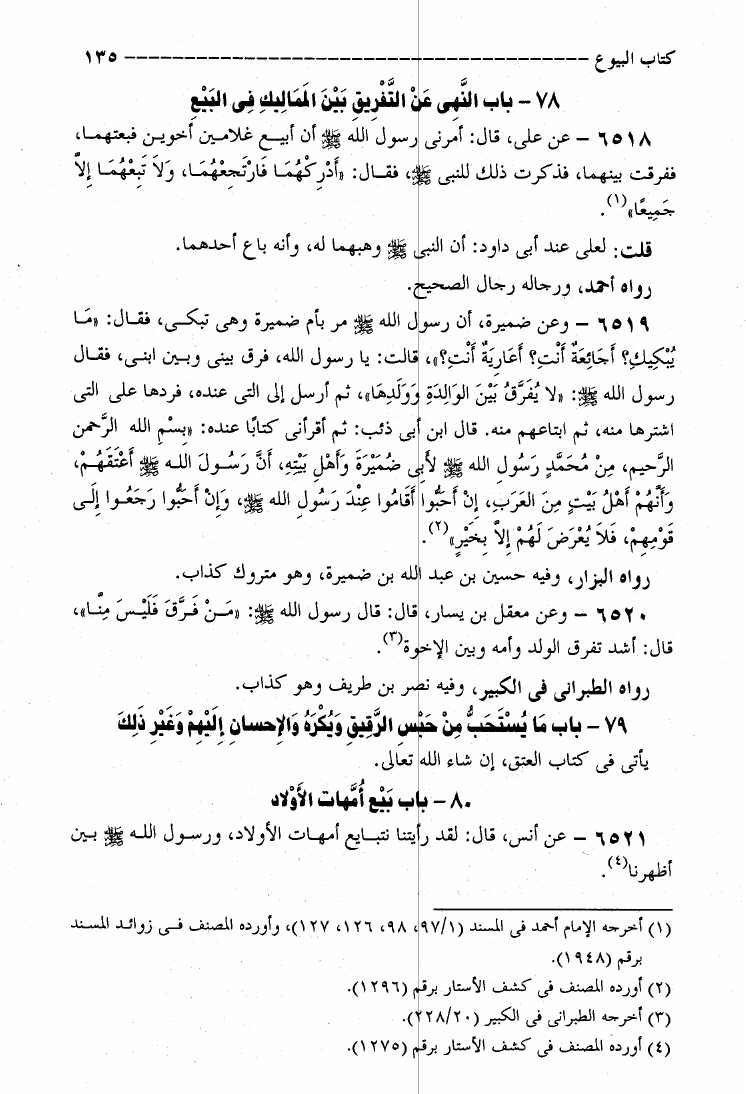 كتاب البيوع ---------------------------------------- ١٣٥
٧٨ - باب النَّهِى عَنْ التَّفْرِيقِ بَيْنَ المَمَالِيكِ فِى البَيْعِ
٦٥١٨ - عن على، قال: أمرنى رسول الله ﷺ أن أبيع غلامين أخوين فبعتهما،
ففرقت بينهما، فذكرت ذلك للنبى ﷺ، فقال: «أَدْرِكْهُمَا فَارْتَجِعْهُمَا، وَلاَ تَبِعْهُمَا إِلاَّ
جَمِيعًا»(١).
قلت: لعلى عند أبى داود: أن النبى ﷺ وهبهما له، وأنه باع أحدهما.
رواه أحمد، ورجاله رجال الصحيح.
٦٥١٩ - وعن ضميرة، أن رسول الله ﷺ مر بأم ضميرة وهى تبكى، فقال: «مَا
يُبْكِيكِ؟ أَجَائِعَةٌ أَنْتِ؟ أَعَارِيَةٌ أَنْتِ؟»، قالت: يا رسول الله، فرق بينى وبين ابنى، فقال
رسول الله ﷺ: «لا يُفَرَّقُ بَيْنَ الوَالِدَةِ وَوَلَدِهَا»، ثم أرسل إلى التى عنده، فردها على التى
اشترها منه، ثم ابتاعهم منه. قال ابن أبى ذئب: ثم أقرأنى كتابًا عنده: «بِسْمِ الله الرَّحمن
الرَّحيم، مِنْ مُحَمَّدٍ رَسُولِ الله ﷺ لأَبِى ضُمَيْرَةَ وَأَهْلِ بَيْتِهِ، أَنَّ رَسُولَ اللـه ﷺ أَعْتَقَهُمْ،
وَأَنَّهُمْ أَهْلُ بَيْتٍ مِنَ العَرَبِ، إِنْ أَحَبُّوا أَقَامُوا عِنْدَ رَسُولِ الله ﷺ، وَإِنْ أَحَبُّوا رَجَعُوا إِلَى
قَوْمِهِمْ، فَلاَ يُعْرَضَ لَهُمْ إِلاَّ بِخَيْرٍ»(٢).
رواه البزار، وفيه حسين بن عبد الله بن ضميرة، وهو متروك كذاب.
٦٥٢٠ - وعن معقل بن يسار، قال: قال رسول الله ﷺ: «مَنْ فَرَّقَ فَلَيْسَ مِنَّا»،
قال: أشد تفرق الولد وأمه وبين الإخوة(٣).
رواه الطبرانى فى الكبير، وفيه نصر بن طريف وهو كذاب.
٧٩ - باب مَا يُسْتَحَبُّ مِنْ حَبْسِ الرَّقِيقِ وَيُكْرَهُ وَالإِحسانِ إِلَيْهِمْ وَغَيْرِ ذَلِكَ
يأتى فى كتاب العتق، إن شاء الله تعالى.
٨٠ - باب بَيْعِ أُمَّهات الأَوْلاد
٦٥٢١ - عن أنس، قال: لقد رأيتنا نتبايع أمهات الأولاد، ورسول اللـه ﷺ بين
أظهرنا(٤).
(١) أخرجه الإمام أحمد فى المسند (٩٧/١، ٩٨، ١٢٦، ١٢٧)، وأورده المصنف فى زوائد المسند
برقم (١٩٤٨).
(٢) أورده المصنف فى كشف الأستار برقم (١٢٩٦).
(٣) أخرجه الطبرانى فى الكبير (٢٢٨/٢٠).
(٤) أورده المصنف فى كشف الأستار برقم (١٢٧٥).